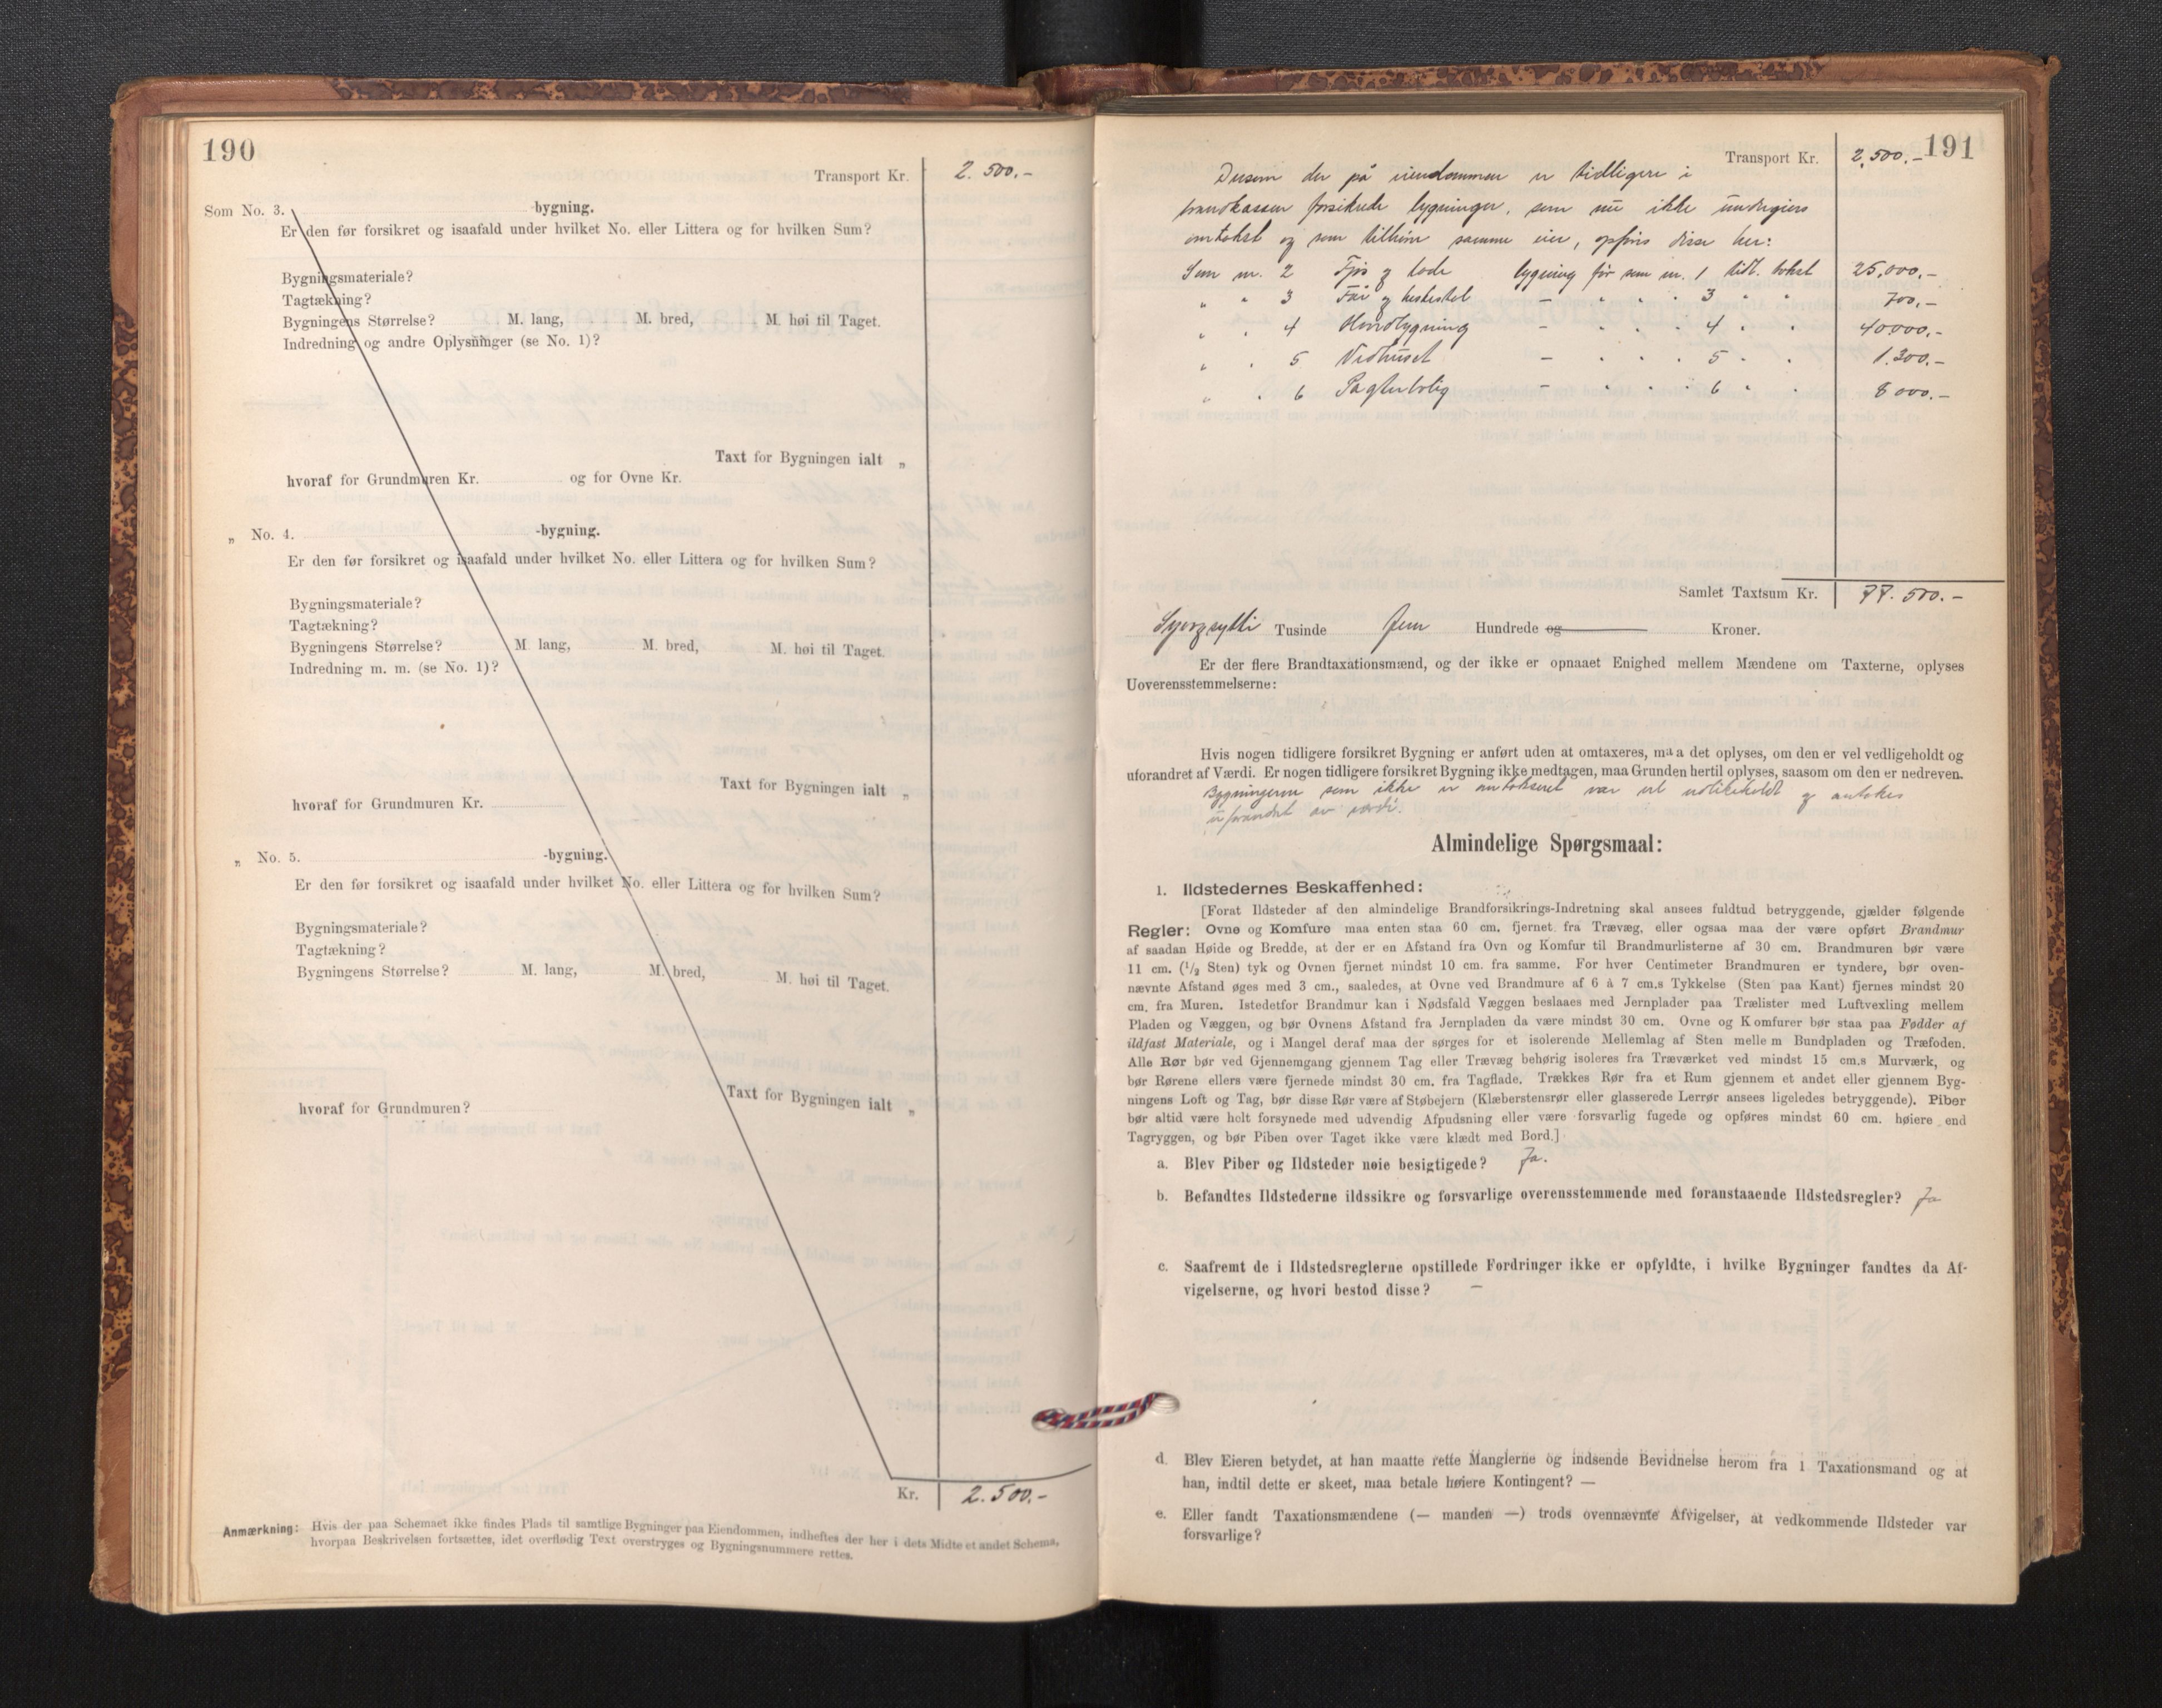 190
Transport Kr. 2.500.-
Som No. 3. -bygning.
Er den før forsikret og isaafald under hvilket No. eller Littera og for hvilken Sum?
Bygningsmateriale?
Tagtækning?
Bygningens Størrelse? M. lang, M. bred, M. høi til Taget.
Indredning og andre Oplysninger (se No. 1)?
Taxt for Bygningen ialt „
hvoraf for Grundmuren Kr. og for Ovne Kr.
„ No. 4. -bygning.
Er den før forsikret og isaafald under hvilket No. eller Littera og for hvilken Sum?
Bygningsmateriale?
Tagtækning?
Bygningens Størrelse? M. lang, M. bred, M. høi til Taget.
Indredning m. m. (se No. 1)?
Taxt for Bygningen ialt „
hvoraf for Grundmuren Kr.
„ No. 5. -bygning.
Er den før forsikret og isaafald under hvilket No. eller Littera og for hvilken Sum?
Bygningsmateriale?
Tagtækning?
Bygningens Størrelse? M. lang, M. bred, M. høi til Taget.
Taxt for Bygningen ialt „
hvoraf for Grundmuren?
Kr. 2.500.-
Anmærkning: Hvis der paa Schemaet ikke findes Plads til samtlige Bygninger paa Eiendommen, indheftes der her i dets Midte et andet Schema,
hvorpaa Beskrivelsen fortsættes, idet overflødig Text overstryges og Bygningsnummere rettes.
191
Transport Kr. 2.500.-
Dersom der på eiendommen er tidligere i
brandkassen forsikrede bygninger, som nu ikke undergies
omtakst og som tilhører samme eier, opføres disse her:
Som nr. 2 Fjøs og lade bygning før som nr. 1 tidl. takst 25,000.-
„ „ 3 Får og hestestal - „ „ „ 3 „ „ 700,-
„ „ 4 Hovedbygning - „ „ „ 4 „ „ 40000.-
„ „ 5 Vedhuset - „ „ „ 5 „ „ 1.300.-
„ „ 6 Pagterbolig - „ „ „ 6 „ „ 8000.-
Samlet Taxtsum Kr. 77.500.-
Syvogsytti Tusinde fem Hundrede og Kroner.
Er der flere Brandtaxationsmænd, og der ikke er opnaaet Enighed mellem Mændene om Taxterne, oplyses
Uoverensstemmelserne:
Hvis nogen tidligere forsikret Bygning er anført uden at omtaxeres, maa det oplyses, om den er vel vedligeholdt og
uforandret af Værdi. Er nogen tidligere forsikret Bygning ikke medtagen, maa Grunden hertil oplyses, saasom om den er nedreven.
Bygningerne som ikke er omtakseret var vel vedlikeholdt og antakes
uforandret av værdi.
Almindelige Spørgsmaal:
1. Ildstedernes Beskaffenhed:
[Forat Ildsteder af den almindelige Brandforsikrings-Indretning skal ansees fuldtud betryggende, gjælder følgende
Regler: Ovne og Komfure maa enten staa 60 cm. fjernet fra Trævæg, eller ogsaa maa der være opført Brandmur
af saadan Høide og Bredde, at der er en Afstand fra Ovn og Komfur til Brandmurlisterne af 30 cm. Brandmuren bør være
11 cm. (1/2 Sten) tyk og Ovnen fjernet mindst 10 cm. fra samme. For hver Centimeter Brandmuren er tyndere, bør oven-
nævnte Afstand øges med 3 cm., saaledes, at Ovne ved Brandmure af 6 à 7 cm.s Tykkelse (Sten paa Kant) fjernes mindst 20
cm. fra Muren. Istedetfor Brandmur kan i Nødsfald Væggen beslaaes med Jernplader paa Trælister med Luftvexling mellem
Pladen og Væggen, og bør Ovnens Afstand fra Jernpladen da være mindst 30 cm. Ovne og Komfurer bør staa paa Fødder af
ildfast Materiale, og i Mangel deraf maa der sørges for et isolerende Mellemlag af Sten mellem Bundpladen og Træfoden.
Alle Rør bør ved Gjennemgang gjennem Tag eller Trævæg behørig isoleres fra Træværket ved mindst 15 cm.s Murværk, og
bør Rørene ellers være fjernede mindst 30 cm. fra Tagflade. Trækkes Rør fra et Rum gjennem et andet eller gjennem Byg-
ningens Loft og Tag, bør disse Rør være af Støbejern (Klæberstensrør eller glasserede Lerrør ansees ligeledes betryggende). Piber
bør altid være helt forsynede med udvendig Afpudsning eller være forsvarlig fugede og opføres mindst 60 cm. høiere end
Tagryggen, og bør Piben over Taget ikke være klædt med Bord.]
a. Blev Piber og Ildsteder nøie besigtigede? Ja.
b. Befandtes Ildstederne ildssikre og forsvarlige overensstemmende med foranstaaende Ildstedsregler? Ja
c. Saafremt de i Ildstedsreglerne opstillede Fordringer ikke er opfyldte, i hvilke Bygninger fandtes da Af-
vigelserne, og hvori bestod disse? —
d. Blev Eieren betydet, at han maatte rette Manglerne og indsende Bevidnelse herom fra 1 Taxationsmand og at
han, indtil dette er skeet, maa betale høiere Kontingent? —
e. Eller fandt Taxationsmændene (— manden —) trods ovennævnte Afvigelser, at vedkommende Ildsteder var
forsvarlige?